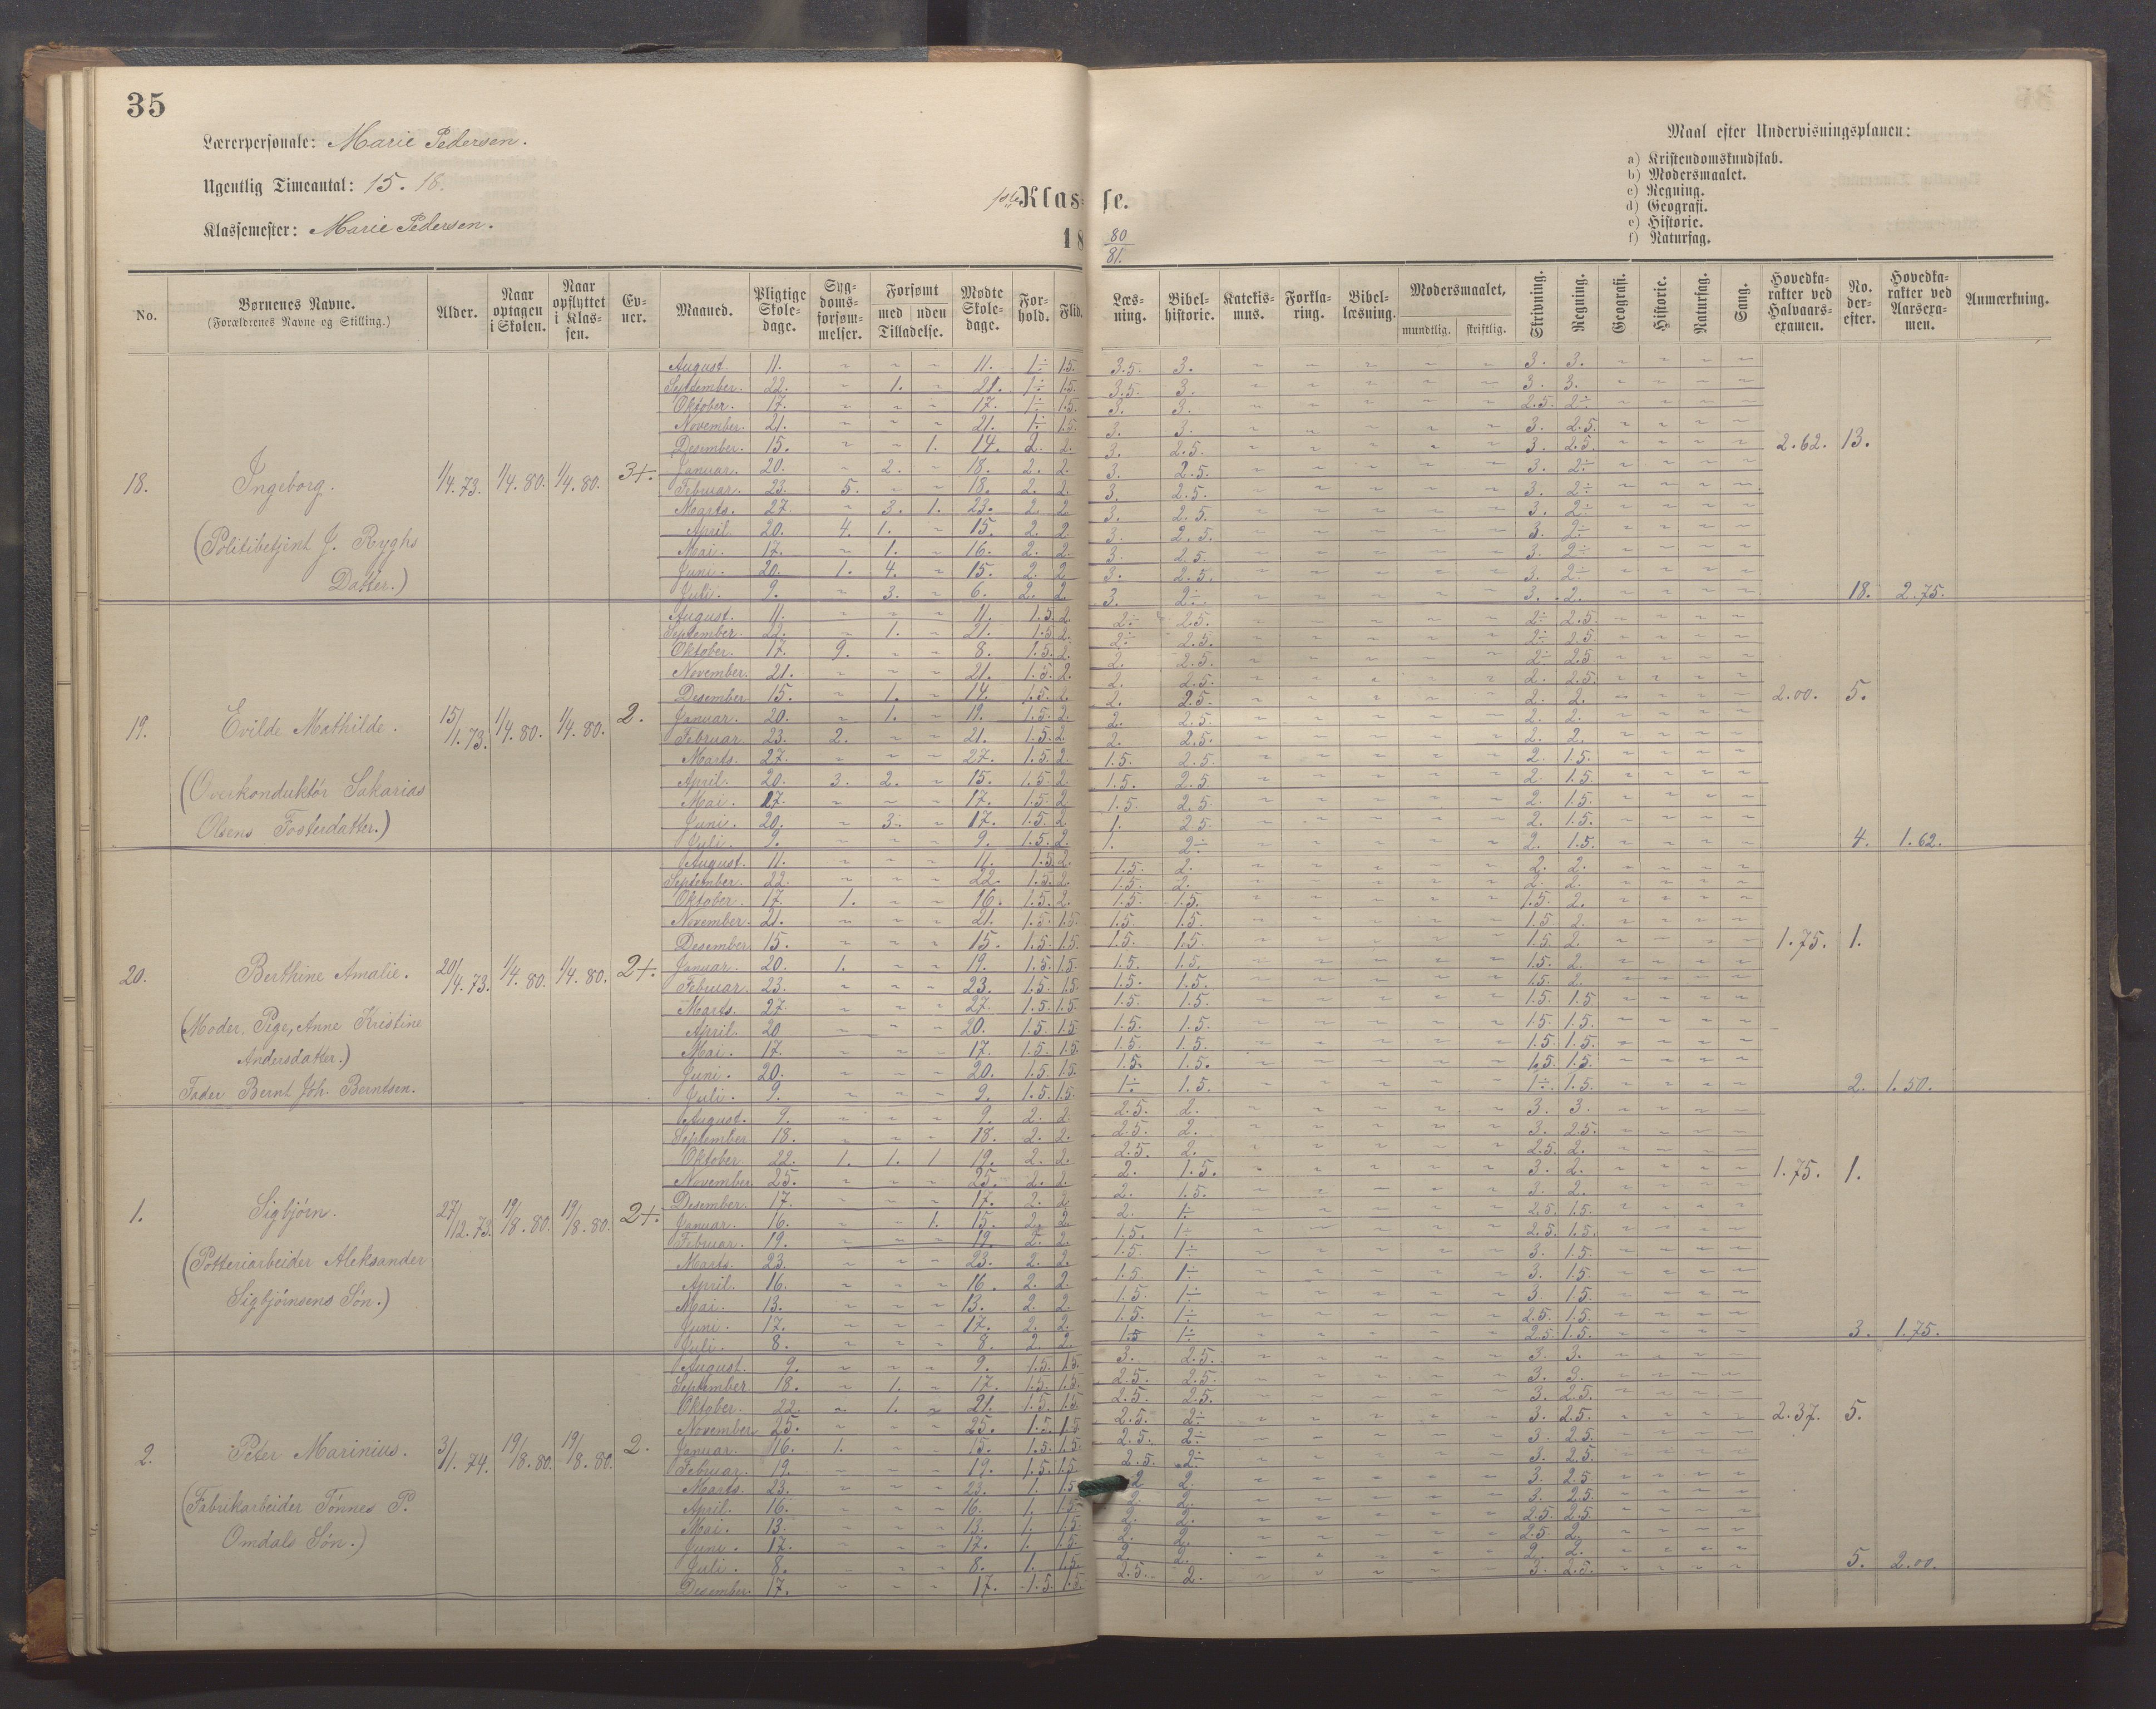 35
Lærerpersonale: Marie Pedersen.
Ugentlig Timeantal: 15. 18.
Klassemester: Marie Pedersen.
1ste Klas- se.
18 80/81.
Maal efter Undervisningsplanen:
a) Kristendomskundskab.
b) Modersmaalet.
c) Regning.
d) Geografi.
e) Historie.
f) Naturfag.
No. Børnenes Navne. (Forældrenes Navne og Stilling.) Alder. Naar optagen i Skolen. Naar opflyttet i Klassen. Evner. Maaned. Pligtige Skoledage. Sygdomsforsømmelser. Forsømt med uden Tilladelse. Mødte Skoledage. Forhold. Flid. Læsning. Bibelhistorie. Katekismus. Forklaring. Bibellæsning. Modersmaalet, mundtlig. skriftlig. Skrivning. Regning. Geografi. Historie. Naturfag. Sang. Hovedkarakter ved Halvaarsexamen. No. derefter. Hovedkarakter ved Aarsexamen. Anmærkning.
18. Ingeborg. 1/4.73. 1/4.80. 1/4.80. 3+.
(Politibetjent J. Ryghs
Datter.)
August. 11. ~ ~ ~ 11. 1÷ 1.5. 3.5. 3. ~ ~ ~ ~ ~ 3. 3. ~ ~ ~ ~
September. 22. ~ 1. ~ 21. 1÷ 1.5. 3.5. 3. ~ ~ ~ ~ ~ 3. 3. ~ ~ ~ ~
Oktober. 17. ~ ~ ~ 17. 1÷ 1.5. 3. 3. ~ ~ ~ ~ ~ 2.5. 2÷ ~ ~ ~ ~
November. 21. ~ ~ ~ 21. 1÷ 1.5. 3. 3. ~ ~ ~ ~ ~ 3. 2.5. ~ ~ ~ ~
Desember. 15. ~ ~ 1. 14. 2. 2. 3. 2.5. ~ ~ ~ ~ ~ 3. 2.5. ~ ~ ~ ~ 2.62. 13.
Januar. 20. ~ 2. ~ 18. 2. 2. 3. 2.5. ~ ~ ~ ~ ~ 3. 2÷ ~ ~ ~ ~
Februar. 23. 5. ~ ~ 18. 2. 2. 3. 2.5. ~ ~ ~ ~ ~ 3. 2÷ ~ ~ ~ ~
Marts. 27. ~ 3. 1. 23. 2. 2. 3. 2.5. ~ ~ ~ ~ ~ 3. 2÷ ~ ~ ~ ~
April. 20. 4. 1. ~ 15. 2. 2. 3. 2.5. ~ ~ ~ ~ ~ 3. 2÷ ~ ~ ~ ~
Mai. 17. ~ 1. ~ 16. 2. 2. 3. 2.5. ~ ~ ~ ~ ~ 3. 2÷ ~ ~ ~ ~
Juni. 20. 1. 4. ~ 15. 2. 2. 3. 2.5. ~ ~ ~ ~ ~ 3. 2÷ ~ ~ ~ ~
Juli. 9. ~ 3. ~ 6. 2. 2. 3. 2÷ ~ ~ ~ ~ ~ 3. 2. ~ ~ ~ ~ 18. 2.75.
19. Evilde Mathilde. 15/1.73. 1/4.80. 1/4.80. 2.
(Overkonduktør Sakarias
Olsens Fosterdatter.)
August. 11. ~ ~ ~ 11. 1.5. 2. 2÷ 2.5. ~ ~ ~ ~ ~ 2÷ 2.5. ~ ~ ~ ~
September. 22. ~ 1. ~ 21. 1.5. 2. 2÷ 2.5. ~ ~ ~ ~ ~ 2÷ 2.5. ~ ~ ~ ~
Oktober. 17. 9. ~ ~ 8. 1.5. 2. 2. 2.5. ~ ~ ~ ~ ~ 2÷ 2.5 ~ ~ ~ ~
November. 21. ~ ~ ~ 21. 1.5. 2. 2. 2.5. ~ ~ ~ ~ ~ 2. 2.5. ~ ~ ~ ~
Desember. 15. ~ 1. ~ 14. 1.5. 2. 2. 2.5. ~ ~ ~ ~ ~ 2. 2. ~ ~ ~ ~ 2.00. 5.
Januar. 20. ~ 1. ~ 19. 1.5. 2. 2. 2.5. ~ ~ ~ ~ ~ 2. 2. ~ ~ ~ ~
Februar. 23. 2. ~ ~ 21. 1.5. 2. 2. 2.5. ~ ~ ~ ~ ~ 2. 2. ~ ~ ~ ~
Marts. 27. ~ ~ ~ 27. 1.5. 2. 1.5. 2.5. ~ ~ ~ ~ ~ 2. 1.5. ~ ~ ~ ~
April. 20. 3. 2. ~ 15. 1.5. 2. 1.5. 2.5. ~ ~ ~ ~ ~ 2. 1.5. ~ ~ ~ ~
Mai. 17. ~ ~ ~ 17. 1.5. 2. 1.5. 2.5. ~ ~ ~ ~ ~ 2. 1.5. ~ ~ ~ ~
Juni. 20. ~ 3. ~ 17. 1.5. 2. 1. 2.5. ~ ~ ~ ~ ~ 2. 1.5. ~ ~ ~ ~
Juli. 9. ~ ~ ~ 9. 1.5. 2. 1. 2÷ ~ ~ ~ ~ ~ 2. 1.5. ~ ~ ~ ~ 4. 1.62.
20. Berthine Amalie. 20/4.73. 1/4.80. 1/4.80. 2+.
(Moder, Pige, Anne Kristine
Andersdatter.)
Fader Bernt Joh. Berntsen.
August. 11. ~ ~ ~ 11. 1.5. 2. 1.5. 2. ~ ~ ~ ~ ~ 2. 2. ~ ~ ~ ~
September. 22. ~ ~ ~ 22. 1.5. 2. 1.5. 2. ~ ~ ~ ~ ~ 2. 2. ~ ~ ~ ~
Oktober. 17. 1. ~ ~ 16. 1.5. 2. 1.5. 1.5. ~ ~ ~ ~ ~ 1.5. 2. ~ ~ ~ ~
November. 21. ~ ~ ~ 21. 1.5. 1.5. 1.5. 1.5. ~ ~ ~ ~ ~ 1.5. 2. ~ ~ ~ ~
Desember. 15. ~ ~ ~ 15. 1.5. 1.5. 1.5. 1.5. ~ ~ ~ ~ ~ 1.5. 2. ~ ~ ~ ~ 1.75. 1.
Januar. 20. 1. ~ ~ 19. 1.5. 1.5. 1.5. 1.5. ~ ~ ~ ~ ~ 1.5. 2. ~ ~ ~ ~
Februar. 23. ~ ~ ~ 23. 1.5. 1.5. 1.5. 1.5. ~ ~ ~ ~ ~ 1.5. 2. ~ ~ ~ ~
Marts. 27. ~ ~ ~ 27. 1.5. 1.5. 1.5. 1.5. ~ ~ ~ ~ ~ 1.5. 1.5. ~ ~ ~ ~
April. 20. ~ ~ ~ 20. 1.5. 1.5. 1.5. 1.5. ~ ~ ~ ~ ~ 1.5. 1.5. ~ ~ ~ ~
Mai. 17. ~ ~ ~ 17. 1.5. 1.5. 1.5. 1.5. ~ ~ ~ ~ ~ 1.5. 1.5. ~ ~ ~ ~
Juni. 20. ~ ~ ~ 20. 1.5. 1.5. 1.5. 1.5. ~ ~ ~ ~ ~ 1.5. 1.5. ~ ~ ~ ~
Juli. 9. ~ ~ ~ 9. 1.5. 1.5. 1÷ 1.5. ~ ~ ~ ~ ~ 1÷ 1.5. ~ ~ ~ ~ 2. 1.50.
1. Sigbjørn. 27/12.73. 19/8.80. 19/8.80. 2+.
(Potteriarbeider Aleksander
Sigbjørnsens Søn.)
August. 9. ~ ~ ~ 9. 2. 2. 2.5. 2. ~ ~ ~ ~ ~ 3. 3. ~ ~ ~ ~
September. 18. ~ ~ ~ 18. 2. 2. 2.5. 2. ~ ~ ~ ~ ~ 3. 2.5. ~ ~ ~ ~
Oktober. 22. 1. 1. 1 19. 2. 2. 2.5. 2. ~ ~ ~ ~ ~ 2.5. 2. ~ ~ ~ ~
November. 25. ~ ~ ~ 25. 2. 2. 2. 1.5. ~ ~ ~ ~ ~ 3. 2. ~ ~ ~ ~ 1.75. 1.
Desember. 17. ~ ~ ~ 17. 2. 2. 2. 1.5. ~ ~ ~ ~ ~ 3. 2. ~ ~ ~ ~
Januar. 16. ~ ~ 1. 15. 2. 2. 2. 1÷ ~ ~ ~ ~ ~ 2.5. 1.5. ~ ~ ~ ~
Februar. 19. ~ ~ ~ 19. 2. 2. 1.5. 1÷ ~ ~ ~ ~ ~ 2.5. 1.5. ~ ~ ~ ~
Marts. 23. ~ ~ ~ 23. 2. 2. 1.5. 1÷ ~ ~ ~ ~ ~ 3. 1.5. ~ ~ ~ ~
April. 16. ~ ~ ~ 16. 2. 2. 1.5 1÷ ~ ~ ~ ~ ~ 3. 1.5. ~ ~ ~ ~
Mai. 13. ~ ~ ~ 13. 2. 2. 1.5. 1÷ ~ ~ ~ ~ ~ 3. 1.5. ~ ~ ~ ~
Juni. 17. ~ ~ ~ 17. 2. 2. 1.5. 1÷ ~ ~ ~ ~ ~ 2.5. 1.5. ~ ~ ~ ~
Juli. 8. ~ ~ ~ 8. 2. 2. 1.5 1÷ ~ ~ ~ ~ ~ 2.5. 1.5. ~ ~ ~ ~ 3. 1.75.
2. Peter Marinius. 3/1.74. 19/8.80. 19/8.80. 2.
(Fabrikarbeider Tønnes P.
Omdals Søn.)
August. 9. ~ ~ ~ 9. 1.5. 1.5. 3. 2.5. ~ ~ ~ ~ ~ 3. 3. ~ ~ ~ ~
September. 18. ~ 1. ~ 17. 1.5. 1.5. 2.5. 2.5. ~ ~ ~ ~ ~ 3. 3. ~ ~ ~ ~
Oktober. 22. ~ 1. ~ 21. 1.5. 1.5. 2.5. 2.5. ~ ~ ~ ~ ~ 3. 2.5. ~ ~ ~ ~
November. 25. ~ ~ ~ 25. 1.5. 1.5. 2.5. 2÷ ~ ~ ~ ~ ~ 3. 2.5. ~ ~ ~ ~ 2.37. 5.
Januar. 16. 1. ~ ~ 15. 1.5. 1.5. 2.5. 2÷ ~ ~ ~ ~ ~ 3. 2.5. ~ ~ ~ ~
Februar. 19. ~ ~ ~ 19. 1.5. 1.5 2.5. 2÷ ~ ~ ~ ~ ~ 3. 2.5. ~ ~ ~ ~
Marts. 23. ~ ~ ~ 23. 1. 1.5 2 2. ~ ~ ~ ~ ~ 3. 2.5 ~ ~ ~ ~
April. 16. ~ ~ ~ 16. 1. 1.5. 2. 2. ~ ~ ~ ~ ~ 3. 2.5. ~ ~ ~ ~
Mai. 13. ~ ~ ~ 13. 1. 1.5. 2. 2. ~ ~ ~ ~ ~ 2.5. 2.5. ~ ~ ~ ~
Juni. 17. ~ ~ ~ 17. 1. 1.5. 2. 2. ~ ~ ~ ~ ~ 2.5 2. ~ ~ ~ ~
Juli. 8. ~ ~ ~ 8. 1. 1.5. 2. 2. ~ ~ ~ ~ ~ 2. 2. ~ ~ ~ ~ 5. 2.00.
Desember. 17. ~ ~ ~ 17. 1.5. 1.5. 2.5. 2. ~ ~ ~ ~ ~ 3. 2.5. ~ ~ ~ ~